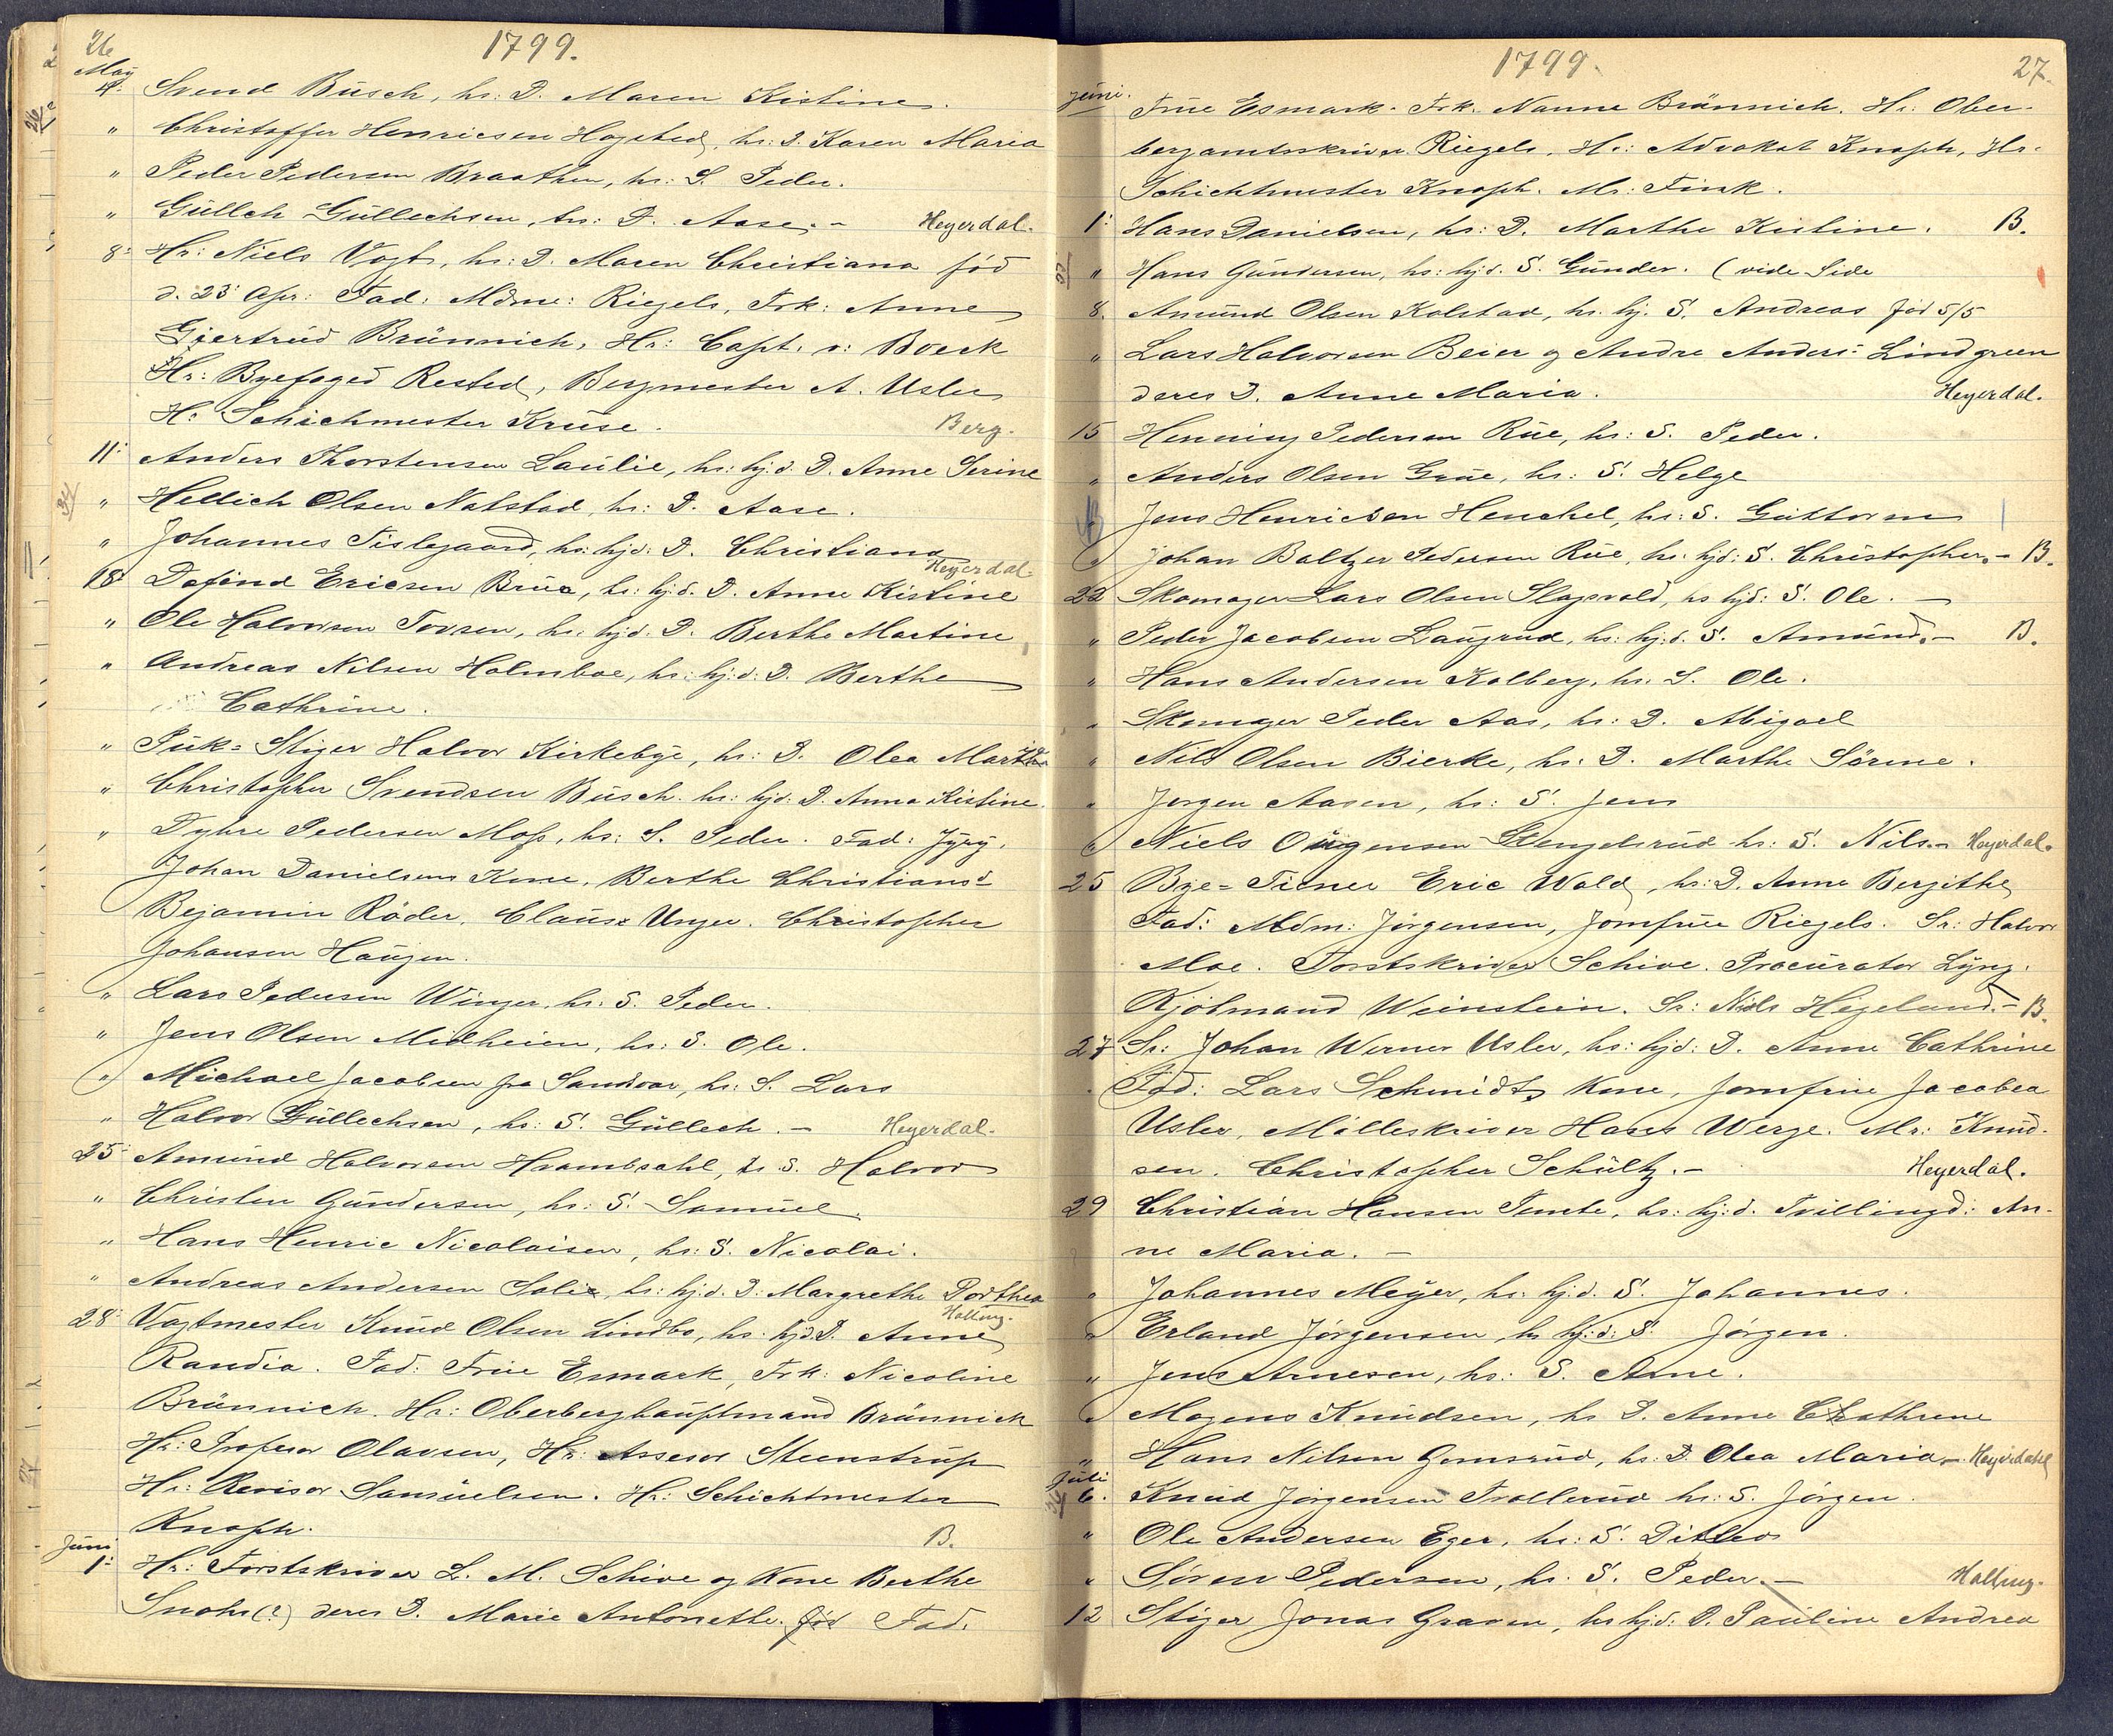 26
1799.
May
4. Svend Büsch, hs: D. Maren Kistine.
" Christoffer Henricsen Hogsted, hs: D. Karen Maria
" Peder Pedersen Braathen, hs: S. Peder.
" Güllch Güllechsen, hs: D. Aase. - Heyerdal.
8: Hr: Niels Vogt, hs: D. Maren Christiana fød
d. 23' Apr: Fad: Mdme: Riegels, Frk: Anne
Giertrüd Brünnich, Hr: Capt. v: Boeck
Hr: Byefoged Rested, Bergmester A. Usler
Hr Schichmester Krüse. Berg.
11: Anders Thorstensen Laülie, hs: hj:d. D. Anne Serine
" Hellich Olsen Natstad, hs: D. Aase.
" Johannes Tislegaard, hs: hjd: D. Christiana
Heyerdal.
18: Defind Ericsen Brüa, hs: hj:d. D. Anne Kistine
" Ole Halvorsen Tovsen, hs: hj:d. D. Berthe Martine
" Andreas Nilsen Holmboe, hs: hj:d: D. Berthe
Cathrine.
" Pük-Stiger Halvor Kirkebye, hs: D. Olea Marthea
" Christopher Svendsen Büsch. hs: hjd: D. Anna Kistine.
" Dyhre Pedersen Moss, hs: S. Peder. Fad: Jgrg.
Johan Danielsens Kone, Berthe Christiansd
Bejamin Röder, Claus Unger. Christopher
Johansen Haügen.
" Lars Pedersen Winger, hs: S. Peder.
" Jens Olsen Midheien, hs: S. Ole.
" Michael Jacobsen fra Sandvar, hs: S. Lars
" Halvor Güllechsen, hs: S. Güllech. - Heyerdal.
25: Amünd Halvorsen Hvambsahl, hs S. Halvor
" Christen Gündersen, hs: S. Samüel.
" Hans Henric Nicolaisen, hs: S. Nicolai.
" Andreas Andersen Solie, hs: hj:d. D: Margrethe Dorthea
Halling.
28: Vagtmester Knüd Olsen Lindbo, hs: hjd D. Anne
Randia. Fad: Früe Esmark, Frk: Nicoline
Brünnich. Hr: Oberberghaüptmand Brünnich
Hr: Profesor Olavsen, Hr: Assesor Steenstrüp
Hr: Revisor Samüelsen. Hr: Schichtmester
Knoph. B.
Juni
1: Hr: Forstskriver L. M. Schive og Kone Berthe
Snohs(?) deres D. Marie Antonethe. fød Fad.
1799.
27.
Juni. Früe Esmark. Frk. Nanne Brünnich. Hr: Ober-
bergamtsskriver Riegels, Hr: Advokat Knoph, Hr.
Schichtmester Knoph. Mr: Fink.
1: Hans Danielsen, hs: D. Marthe Kistine. B.
" Hans Gündersen, hs: hj:d. S. Günder. (vide Side
8. Amünd Olsen Kolstad, hs. hj. S. Andreas fød 5/5
" Lars Halvorsen Beier og Andre Anders: Lindgreen
deres D. Anne Maria. Heyerdal.
15 Henning Pedersen Rüe, hs: S. Peder.
" Anders Olsen Grüe, hs: S. Helge
Jens Henricsen Henchel, hs: S. Güttorm
" Johan Baltzer Pedersen Rüe, hs. hjd: S. Christopher. - B.
22 Skomager Lars Olsen Slagsvold, hs hjd: S. Ole. -
" Peder Jacobsen Laügrüd, hs: hj:d. S. Amünd. - B.
" Hans Andersen Kolberg, hs. S. Ole.
" Skomager Peder Aas, hs: D. Abigael
" Nils Olsen Bierke, hs. D. Marthe Sörine.
" Jørgen Aasen, hs: S. Jens
" Niels Jürgensen Stengelsrüd hs: S. Nils. - Heyerdal.
25 Bye-Tiener Eric Wold, hs: D. Anne Bergithe
Fad: Mdm: Jørgensen, Jomfrüe Riegels. Sr: Halvor
Moe. Forstskriver Schive. Procürator Lyng.
Kjøbmand Weinstein. Sr: Niels Higeland. - B.
27 Sr: Johan Werner Usler, hs: hjd: D. Anne Cathrine
Fad: Lars Schmidts Kone, Jomfrüe Jacobea
Usler, Mølleskriver Hans Werge. Mr: Knüd-
sen. Christopher Schültz. - Heyerdal.
29 Christian Hansen Temte, hs: hj:d. Tvillingd: An-
ne Maria. -
" Johannes Meÿer, hs. hj:d. S. Johannes.
" Erland Jørgensen, hs hj:d: S. Jørgen.
" Jens Arnesen, hs: S. Arne.
" Mogens Knüdsen, hs D. Anne Cathrine
" Hans Nilsen Gomsrüd, hs. D. Olea Maria. - Heyerdahl
Juli
6. Knüd Jørgensen Trollerüd hs: S. Jørgen.
" Ole Andersen Eger, hs: S. Ditlev
" Søren Pedersen, hs. S. Peder. - Halling.
12 Stiger Jonas Graven, hs hj:d: D. Paüline Andrea